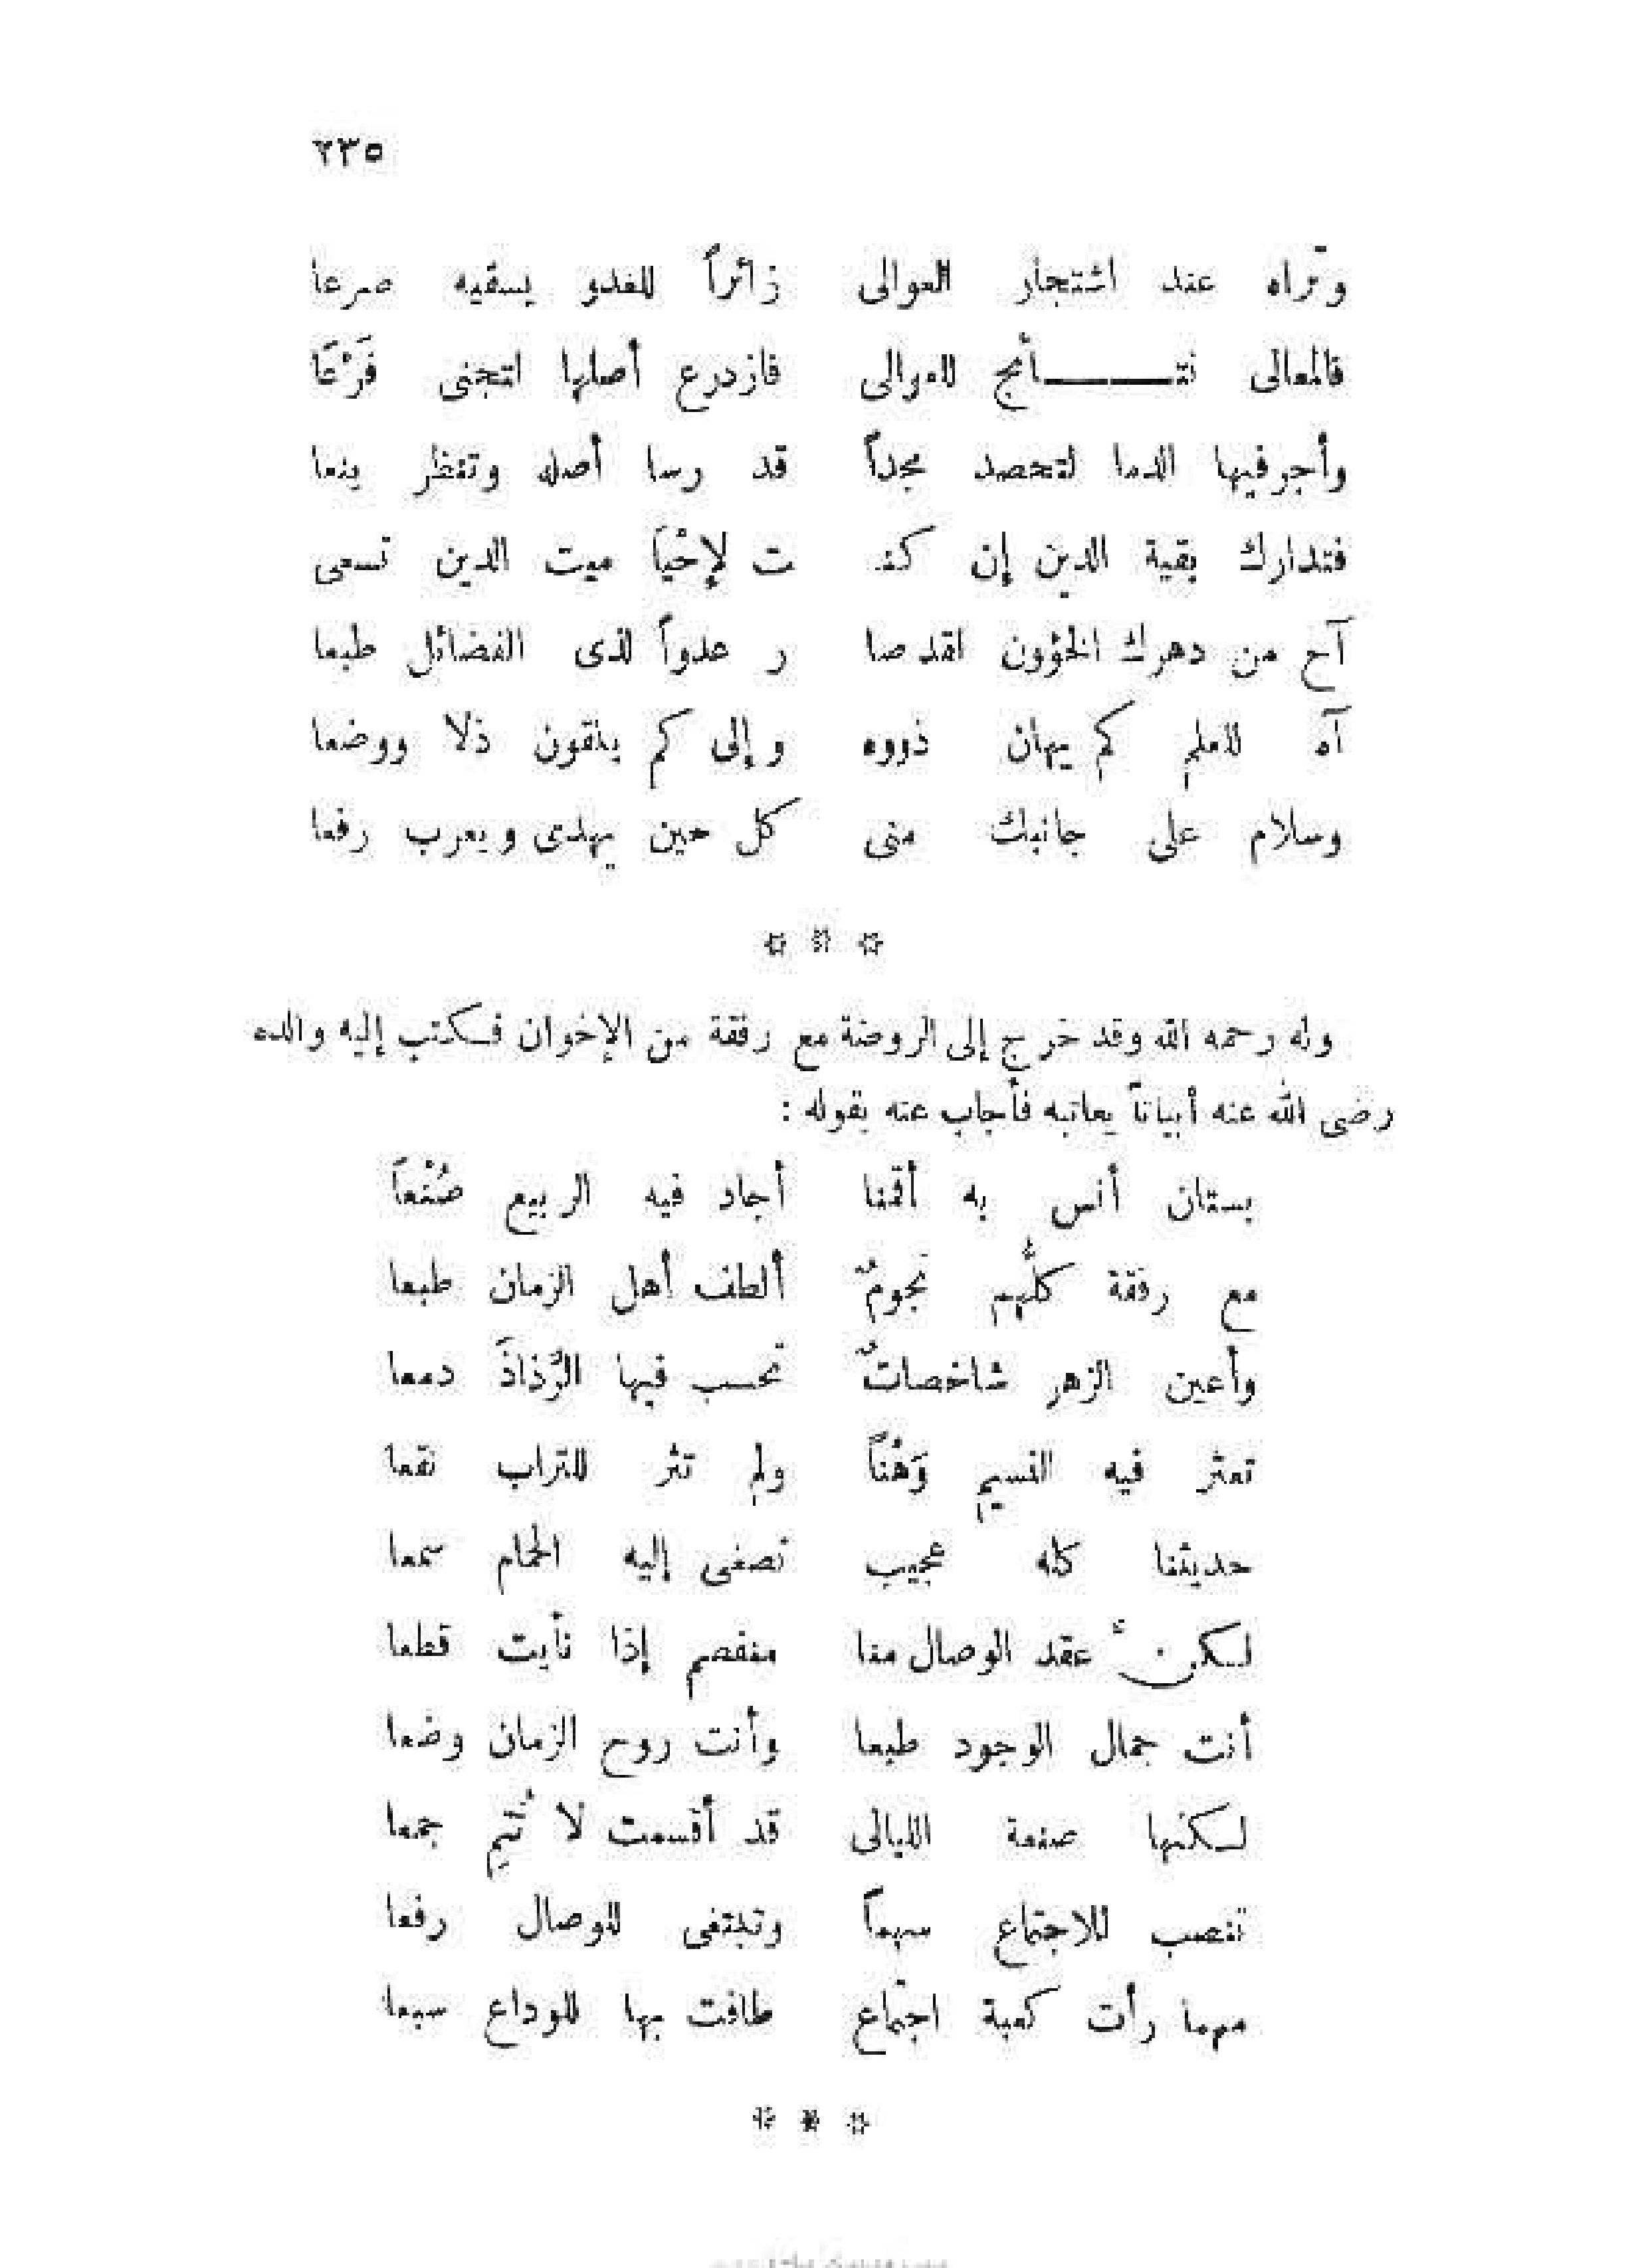 ٢٣٥
وتراه عند اشتجار العوالى زائراً للعدو يسقيه صرعا
فالمعالى نتـــــأمج للعوالى فازدرع أصلها لتجنى فَرْعًا
وأجر فيها الدما لتحصد مجداً قد رسا أصله وتنظر ينعا
فتدارك بقية الدين إن كنـ ت لإحْيَا ميت الدين تسعى
آح من دهرك الخؤون لقد صا ر عدواً لذى الفضائل طبعا
آه للعلم كم يهان ذووه وإلى كم يلقون ذلا ووضعا
وسلام على جانبك منى كل حين يهدى ويعرب رفعا
* * *
وله رحمه الله وقد خرج إلى الروضة مع رفقة من الإخوان فكتب إليه والده
رضى الله عنه أبياتاً يعاتبه فأجاب عنه بقوله :
بستان أنس به أقمنا أجاد فيه الربيع صُنْعاً
مع رفقة كلُّهم نجومٌ ألطف أهل الزمان طبعا
وأعين الزهر شاخصاتٌ تحسب فيها الرَّذاذَ دمعا
تعثر فيه النسيم وَهْناً ولم تثر للتراب نقعا
حديثنا كله عجيب تصغى إليه الحمام سمعا
لكنّ عقد الوصال منا منفصم إذا نأيت قطعا
أنت جمال الوجود طبعا وأنت روح الزمان وضعا
لكنها صنعة الليالى قد أقسمت لا تُتِم جمعا
تنصب للاجتماع سهماً وتبتغى للوصال رفعا
مهما رأت كعبة اجتماع طافت بها للوداع سبعا
* * *